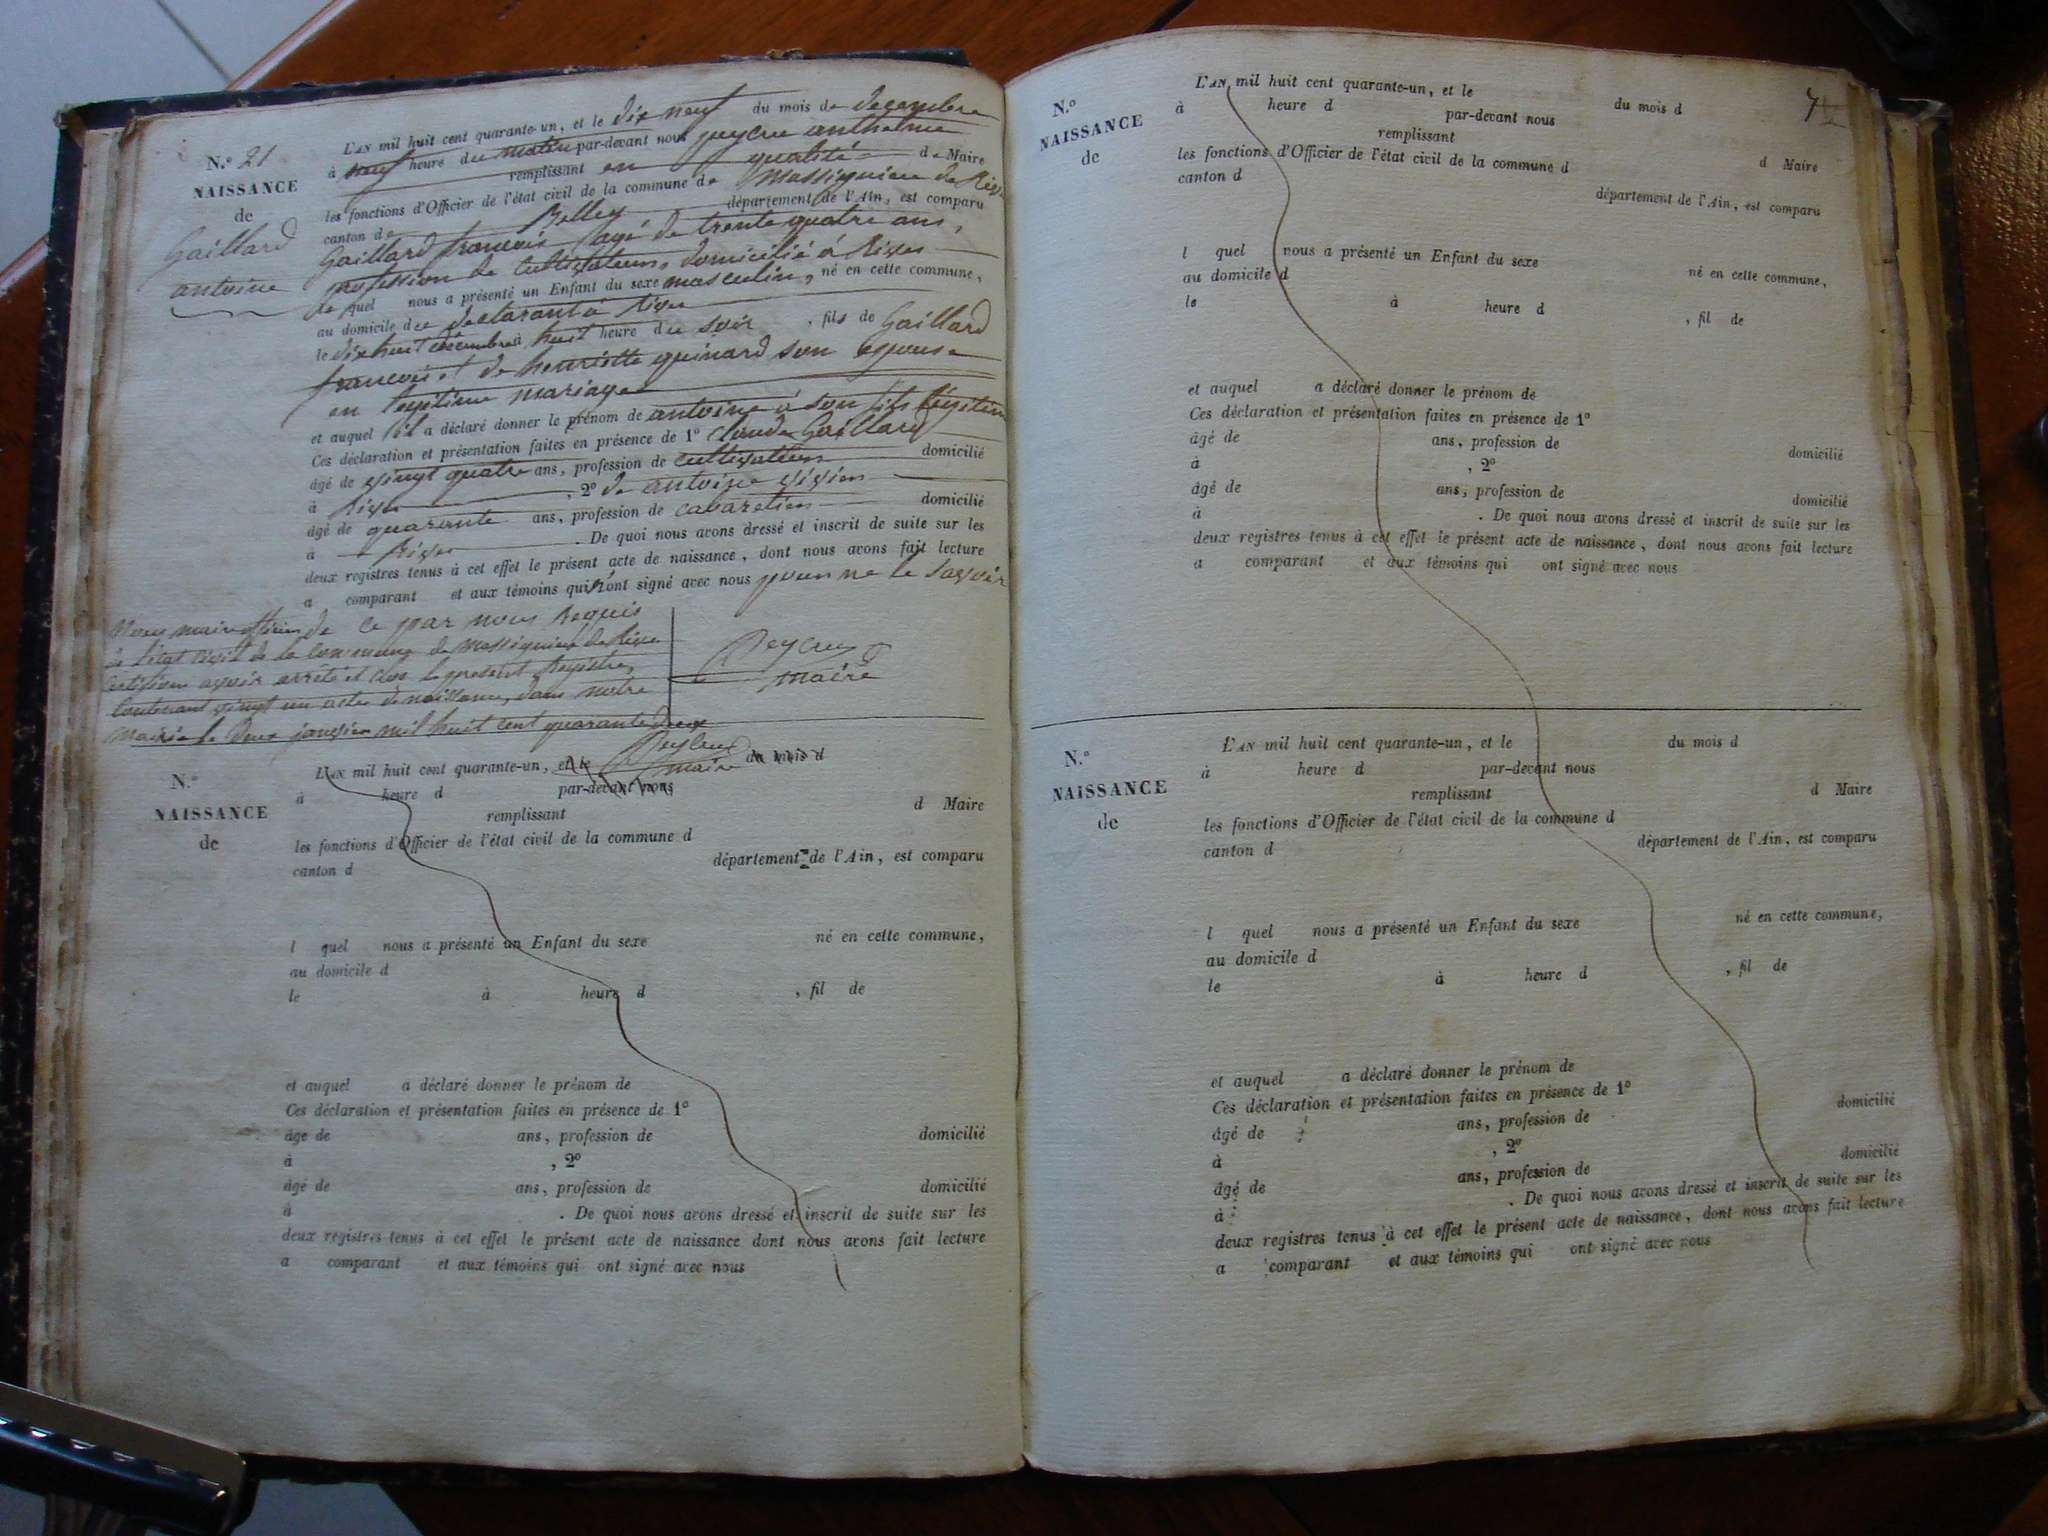 N.° 21
NAISSANCE
de
Gaillard
antoine
L'AN mil huit cent quarante-un, et le dix neuf du mois de decembre
à neuf heure du matin par-devant nous peycru anthelme
remplissant en qualité de Maire
les fonctions d'Officier de l'état civil de la commune de Massignieu de Rives
canton de Belley département de l'Ain, est comparu
Gaillard francois agé de trente quatre ans,
profession de Cultivateur, domicilié à Rives
le quel nous a présenté un Enfant du sexe masculin, né en cette commune,
au domicile du declarant à Rives
le dix huit decembre à huit heure du soir, fils de Gaillard
francois et de henriette guinard son epouse
en legitime mariage
et auquel il a déclaré donner le prénom de antoine à son fils legitime
Ces déclaration et présentation faites en présence de 1° claude Gaillard
âgé de vingt quatre ans, profession de cultivateur domicilié
à Rives, 2° de antoine vivien
âgé de quarante ans, profession de cabaretier domicilié
à Rives. De quoi nous avons dressé et inscrit de suite sur les
deux registres tenus à cet effet le présent acte de naissance, dont nous avons fait lecture
a comparant et aux témoins qui n'ont signé avec nous pour ne le savoir
de ce par nous Requis
Nous maire officier
de l'état civil de la commune de Massignieu de Rives
Certifions avoir arrêté et clos le present Registre,
Contenant vingt un actes de naissance, dans notre
Mairie le deux janvier mil huit cent quarante deux
Peycru
maire
Peycru
maire
N.°
NAISSANCE
de
L'AN mil huit cent quarante-un, et le du mois d
à heure d par-devant nous
remplissant d Maire
les fonctions d'Officier de l'état civil de la commune d
canton d département de l'Ain, est comparu
l quel nous a présenté un Enfant du sexe né en cette commune,
au domicile d
le à heure d , fil de
et auquel a déclaré donner le prénom de
Ces déclaration et présentation faites en présence de 1°
âge de ans, profession de domicilié
à , 2°
âgé de ans, profession de domicilié
à . De quoi nous avons dressé et inscrit de suite sur les
deux registres tenus à cet effet le présent acte de naissance dont nous avons fait lecture
a comparant et aux témoins qui ont signé avec nous
7
N.°
NAISSANCE
de
L'AN mil huit cent quarante-un, et le du mois d
à heure d par-devant nous
remplissant d Maire
les fonctions d'Officier de l'état civil de la commune d
canton d département de l'Ain, est comparu
l quel nous a présenté un Enfant du sexe né en cette commune,
au domicile d
le à heure d , fil de
et auquel a déclaré donner le prénom de
Ces déclaration et présentation faites en présence de 1°
âgé de ans, profession de domicilié
à , 2°
âgé de ans, profession de domicilié
à . De quoi nous avons dressé et inscrit de suite sur les
deux registres tenus à cet effet le présent acte de naissance, dont nous avons fait lecture
a comparant et aux témoins qui ont signé avec nous
N.°
NAISSANCE
de
L'AN mil huit cent quarante-un, et le du mois d
à heure d par-devant nous
remplissant d Maire
les fonctions d'Officier de l'état civil de la commune d
canton d département de l'Ain, est comparu
l quel nous a présenté un Enfant du sexe né en cette commune,
au domicile d
le à heure d , fil de
et auquel a déclaré donner le prénom de
Ces déclaration et présentation faites en présence de 1°
âgé de ans, profession de domicilié
à , 2°
âgé de ans, profession de domicilié
à . De quoi nous avons dressé et inscrit de suite sur les
deux registres tenus à cet effet le présent acte de naissance, dont nous avons fait lecture
a comparant et aux témoins qui ont signé avec nous